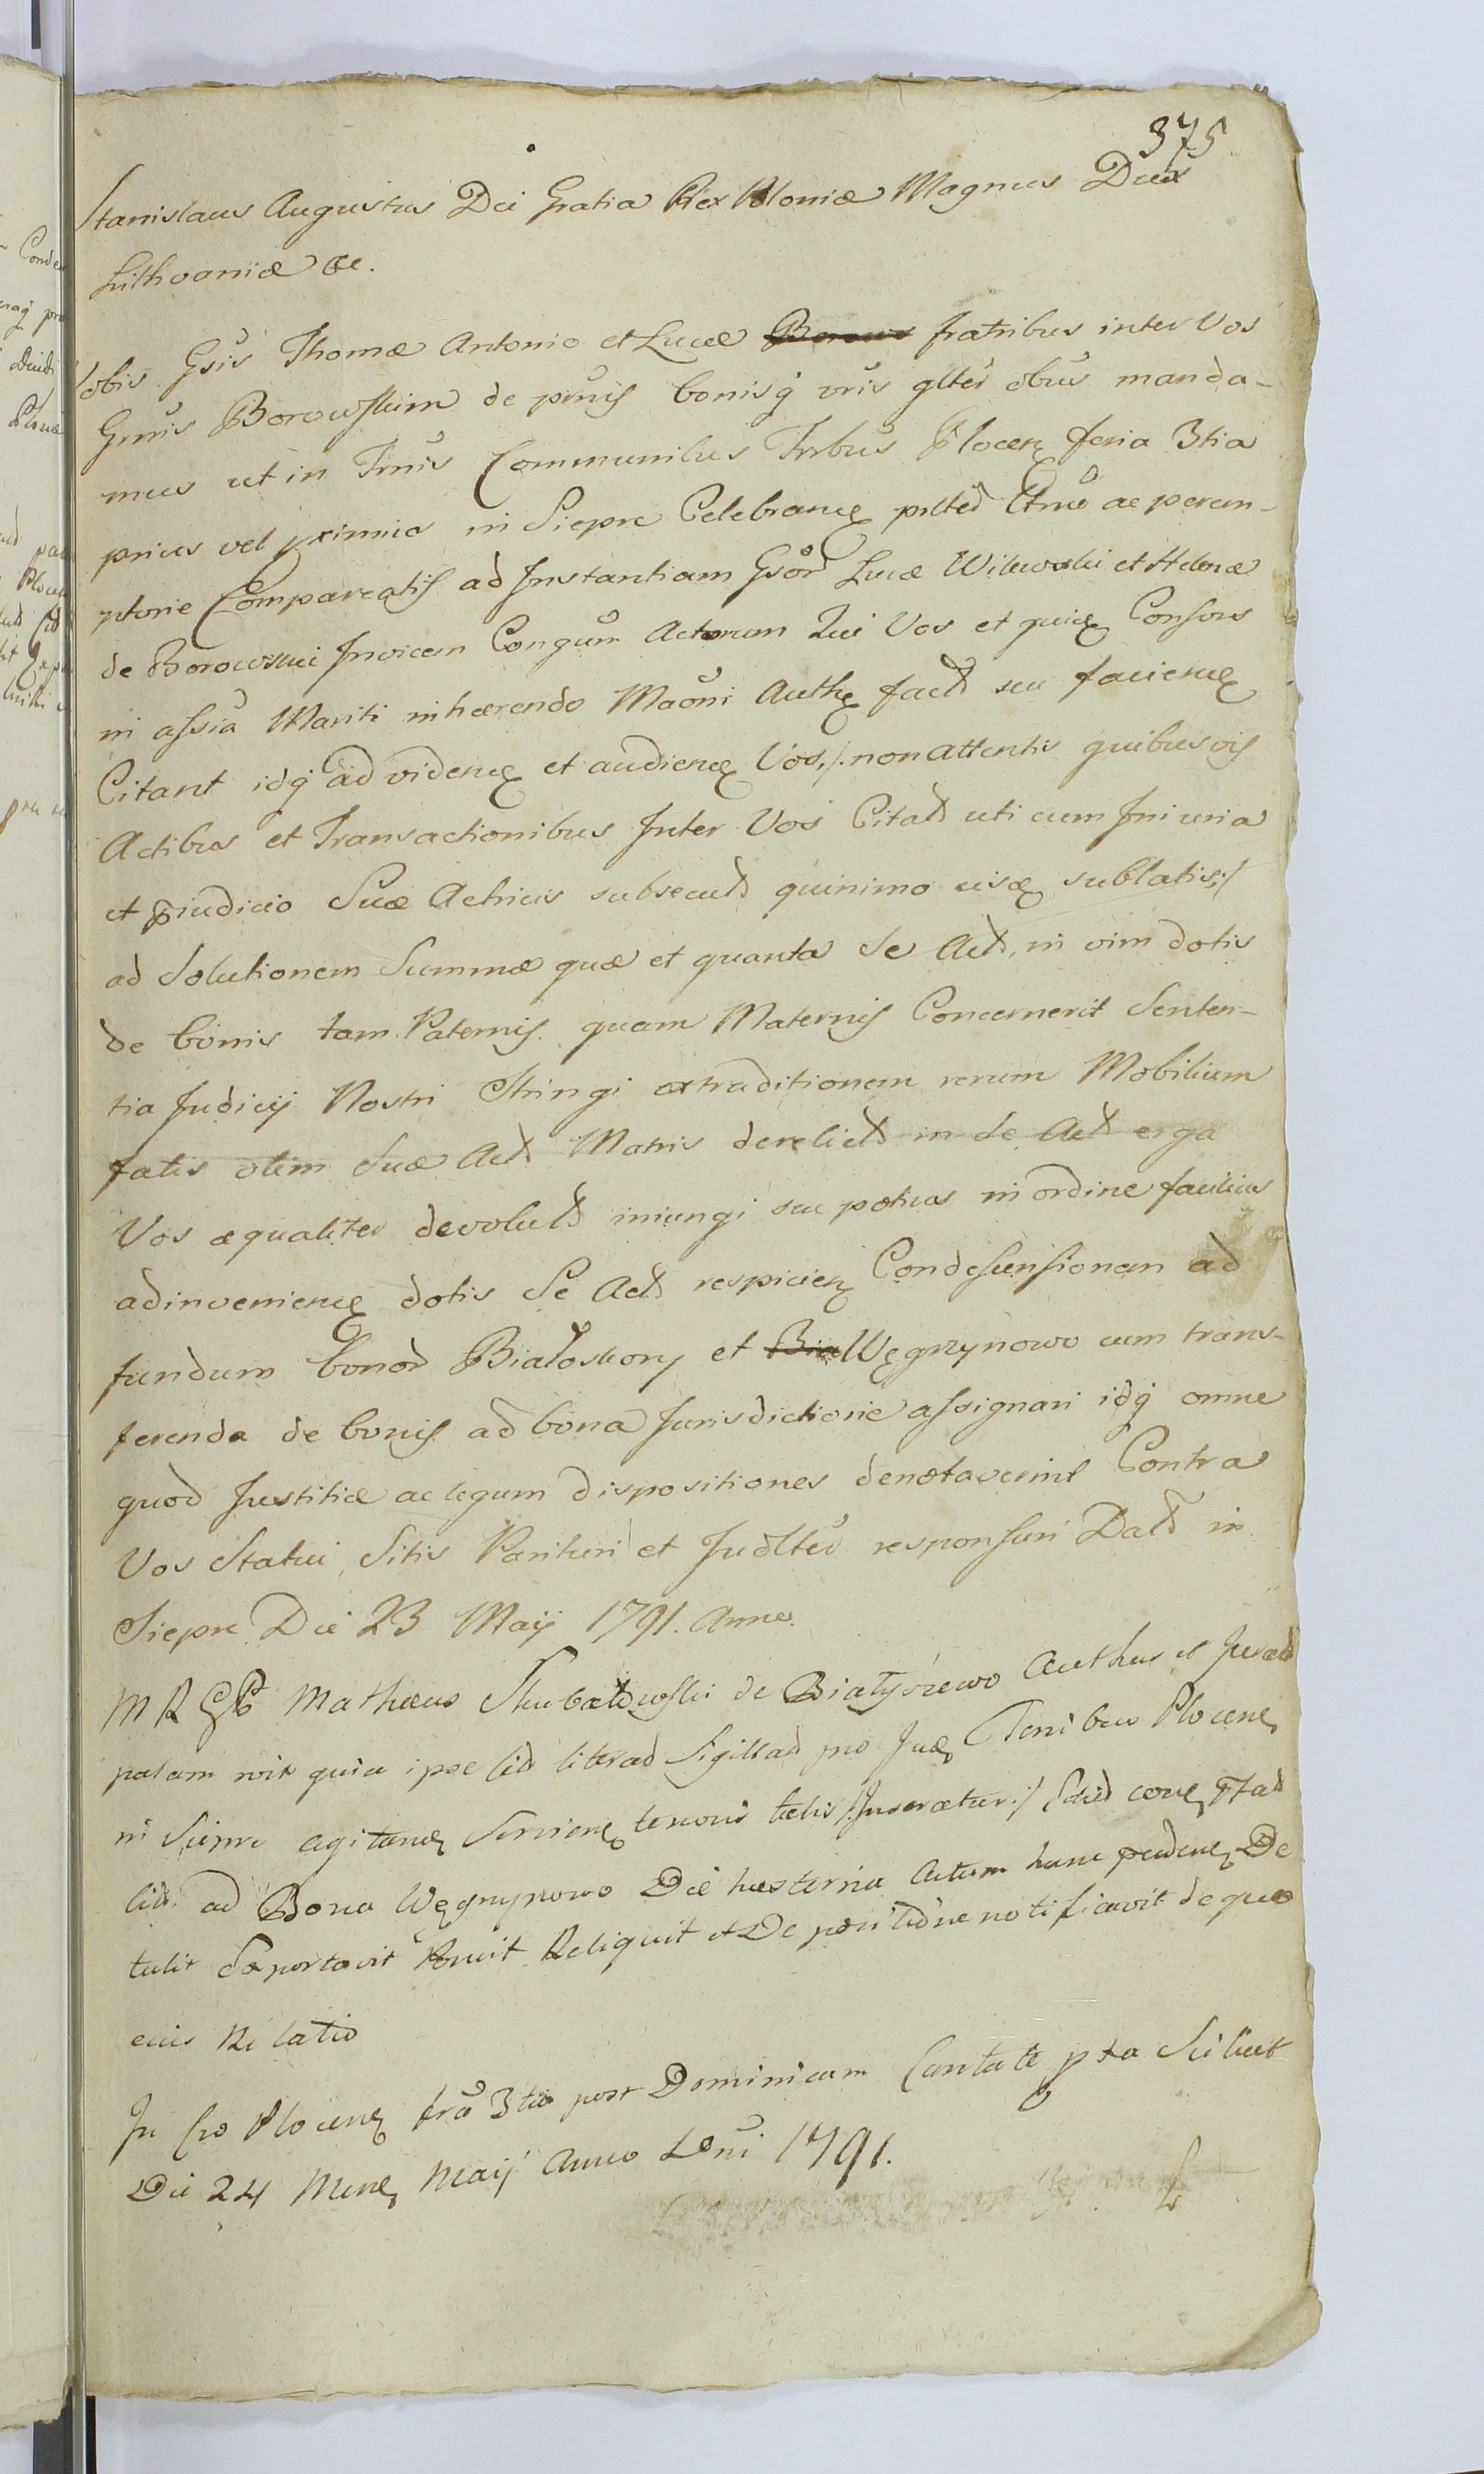 375
Stanislaus Augustus Dei Gratia Rex Poloniæ Magnus Dux
Lithvaniæ &c.
Vobis Gsis Thomæ Antonio et Lucæ Borows fratribus inter Vos
Gmis Borowskim de psnis bonisq vris glter obus manda-
mus ut in Tmis Communibus Trbus Plocen feria 3tia
prius vel primia in Siepre Celebranę pslter Ctmo ac perem-
ptorie Compareatis ad Instantiam Gsor Lucæ Wilewski et Helenæ
de Borowskie Invicem Congum Actorum Qui Vos et quie Consors
in assia Mariti inhærendo Maoni Authę factd seu facienę
Citant idq ad videnę et audienę Vos /: non attentis quibusvis
Actibus et Transactionibus Inter Vos Citatd uti cum Iniuria
et piudicio Suæ Actricis subsecutd quinimo eisę sublatis :/
ad Solutionem Summæ quæ et quanta Se Actd in vim dotis
de bonis tam Paternis quam Maternis Concernerit Senten-
tia Judicij Nostri Stringi extraditionem rerum Mobilium
fatis olim Suæ Actd Matris derelictd in Se Actd erga
Vos æqualiter devolutd iniungi seu potius in ordine facilius
adinvenienę dotis Se Actd respicien Condescensionem ad
fundum bonor Białoskory et Bia Węgrzynowo cum trans-
ferenda de bonis ad bona Jurisdictione assignari idq omne
quod Justitiæ ac legum dispositiones denotaverint Contra
Vos Statui Sitis Parituri et Judlter responsuri Datd in
Siepre Die 23 Maij 1791. Anno.
MRGP Mathæus Skubatowski de Białyszewo Authus et Juratd
palam rit quia ipse litd literad Sigillad pro Judę Ttenibus Plocenę
in Sieprc agitanę Servienę tenoris talis /: Inseratur :/ Edid conę ptad
litd ad Bona Węgrzynowo Die hesterna Actum hunc pcedenę De
tulit Exportavit Posuit Reliquit et De positione notificavit de quo
eius Relatio
In Cro Plocenę fra 3tia post Dominicam Cantate pxa Scilicet
Die 24 Menę Maij Anno Dni 1791.